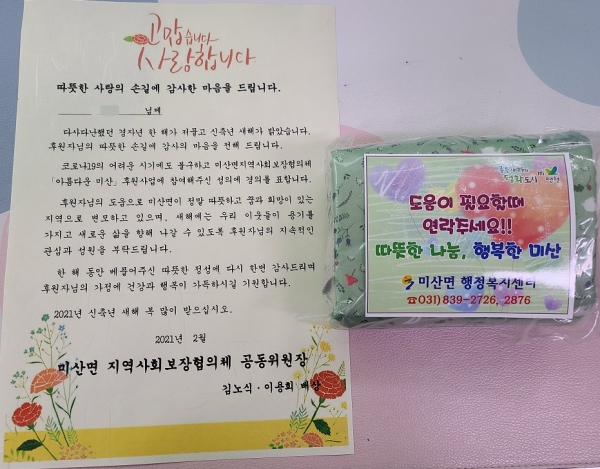 고맙습니다
사랑합니다
따뜻한 사랑의 손길에 감사한 마음을 드립니다.
님께
다사다난했던 경자년 한 해가 저물고 신축년 새해가 밝았습니다.
후원자님의 따뜻한 손길에 감사의 마음을 전해 드립니다.
코로나19의 어려운 시기에도 불구하고 미산면지역사회보장협의체
「아름다운 미산」 후원사업에 참여해주신 성의에 경의를 표합니다.
후원자님의 도움으로 미산면이 정말 따뜻하고 꿈과 희망이 있는
지역으로 변모하고 있으며, 새해에는 우리 이웃들이 용기를
가지고 새로운 삶을 향해 나갈 수 있도록 후원자님의 지속적인
관심과 성원을 부탁드립니다.
한 해 동안 베풀어주신 따뜻한 정성에 다시 한번 감사드리며
후원자님의 가정에 건강과 행복이 가득하시길 기원합니다.
2021년 신축년 새해 복 많이 받으십시오.
2021년 2월
미산면 지역사회보장협의체 공동위원장
김노식·이용희 배상
도움이 필요할때
연락주세요!!
따뜻한 나눔, 행복한 미산
미산면 행정복지센터
☎031)839-2726, 2876